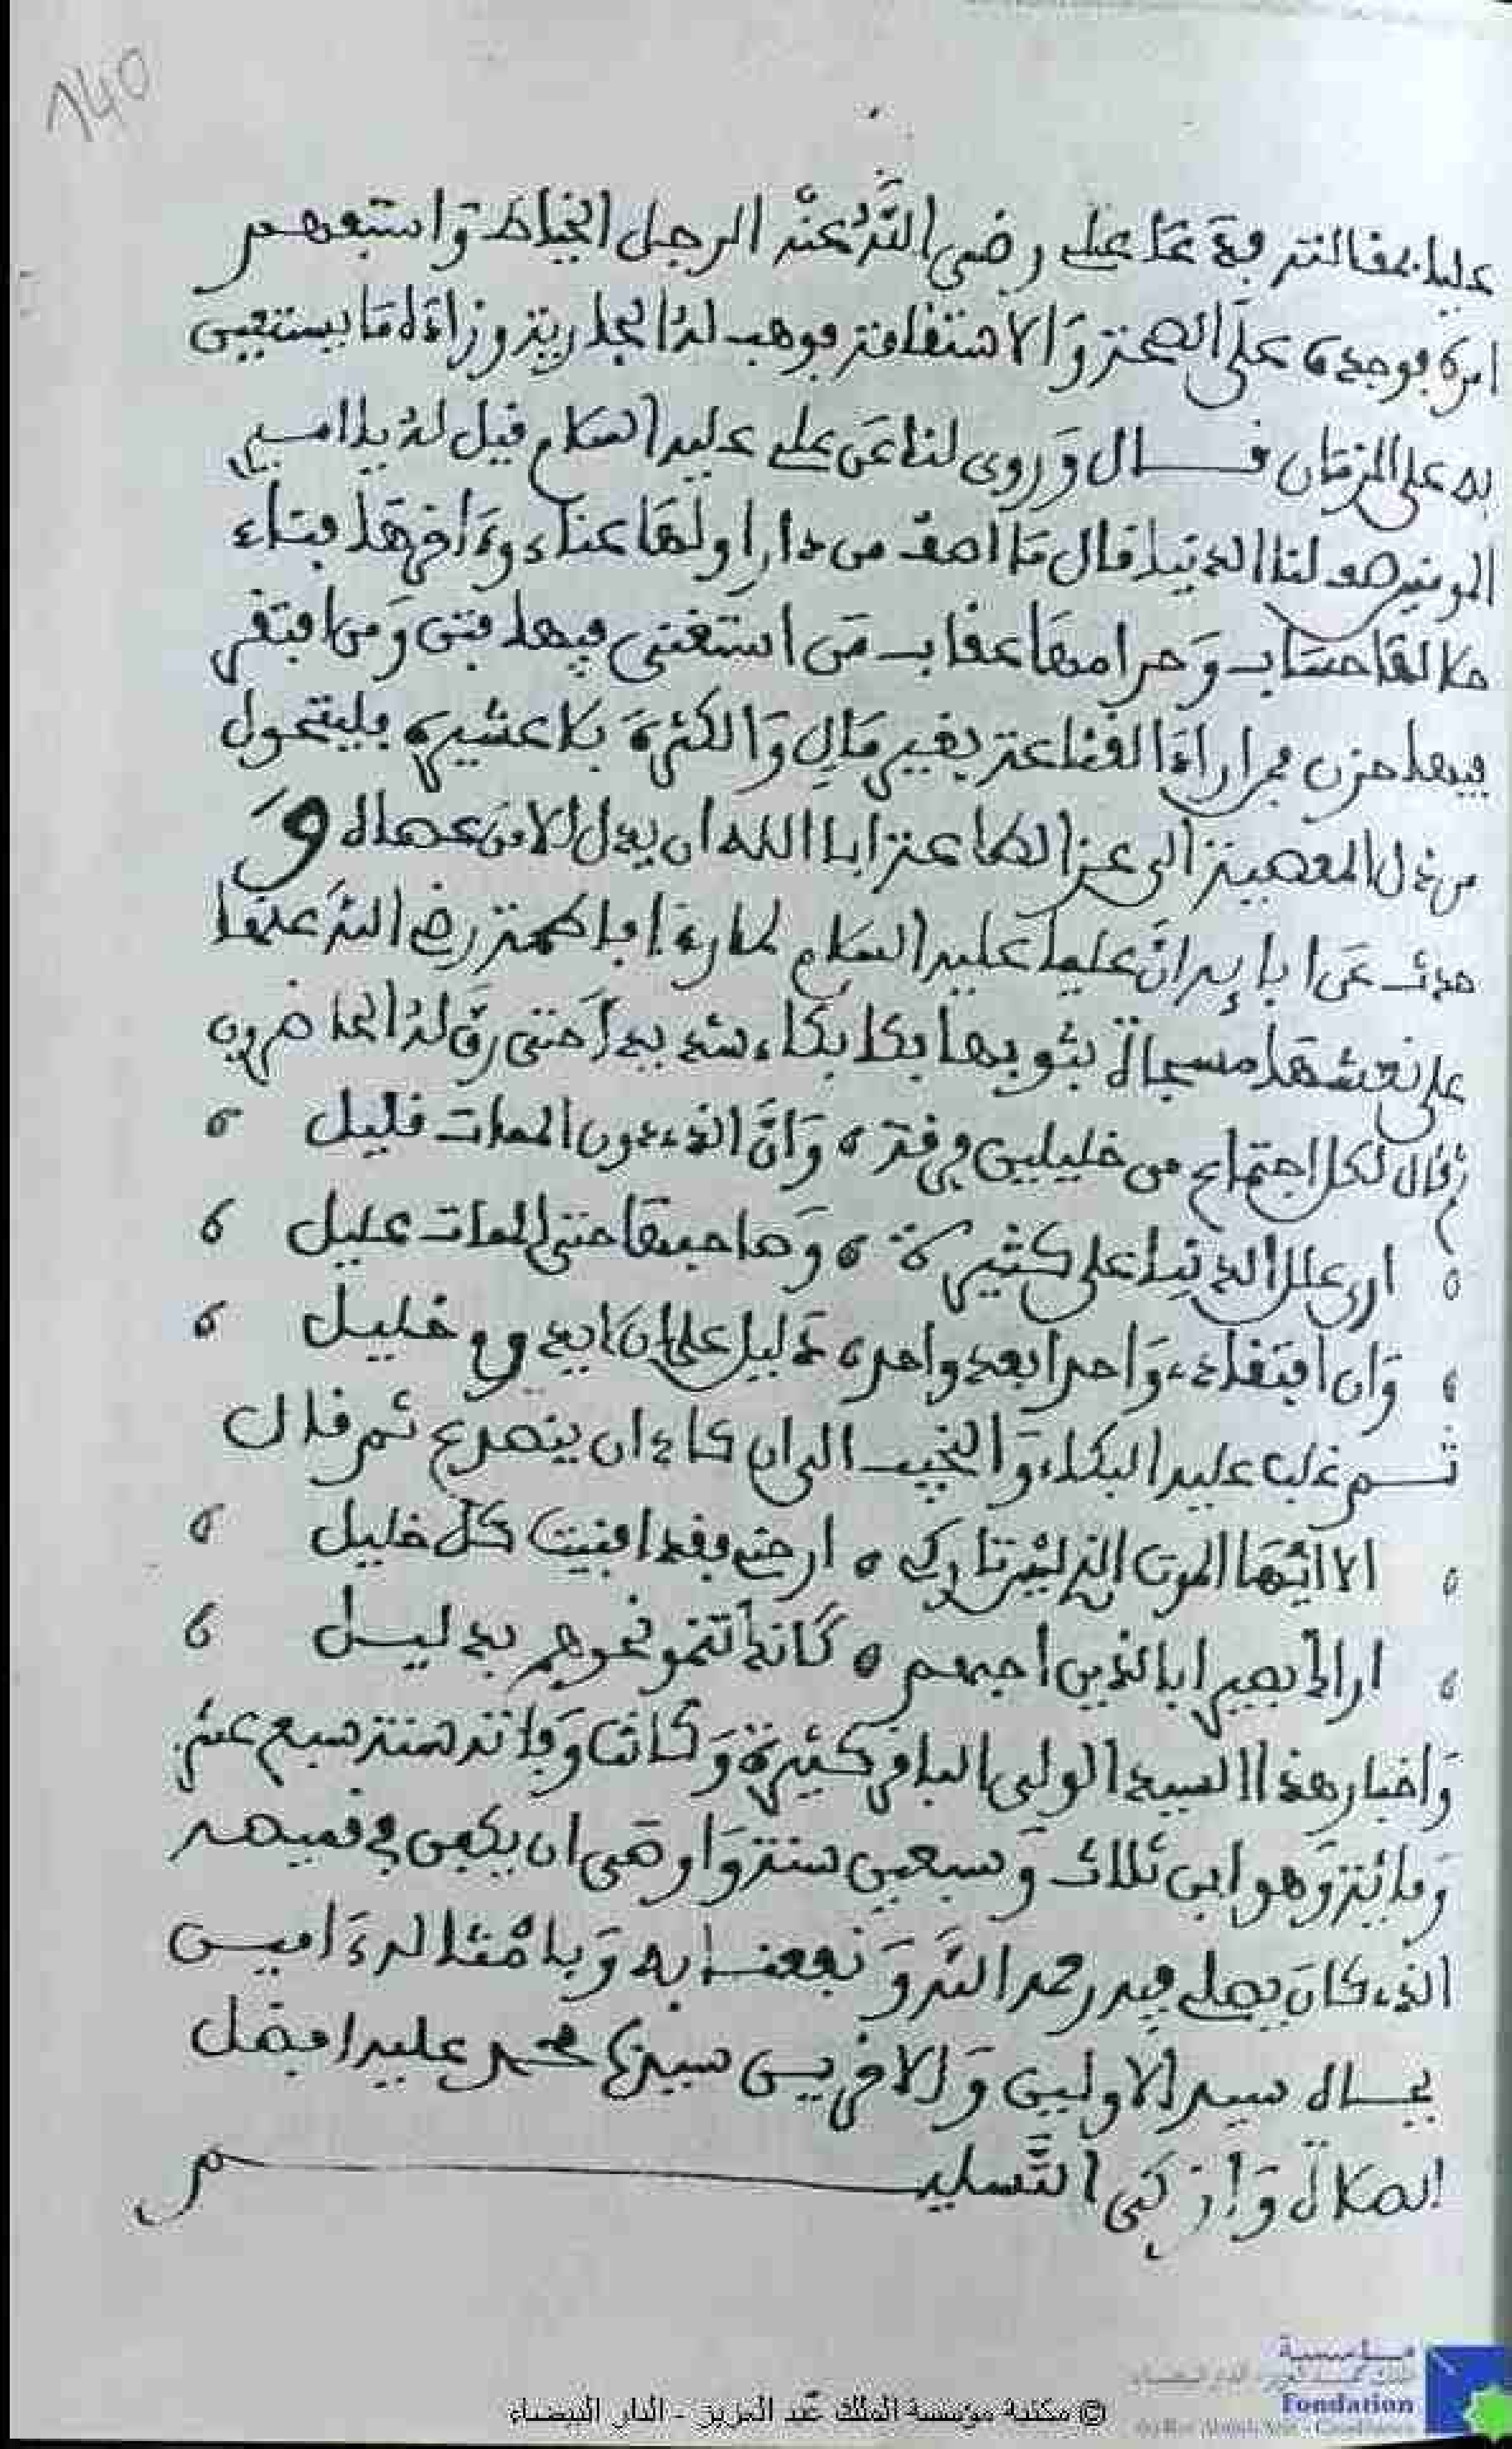 140
عليا بمقالته فدعا علي رضي الله عنه الرجل الخياط واستفهم
امره فوجده على الصحة والاستقامة فوهب له الجارية وزاده ما يستعين
به على الزمان قال وروى لنا عن علي عليه السلام قيل له يا امير
المومنين صف لنا الدنيا قال ما اصف من دار اولها عناء وءاخرها فناء
حلالها حساب وحرامها عقاب من استغنى فيها فتن ومن افتقر
فيها حزن فمن اراد القناعة بغير مال والكثرة بلا عشيرة فليتحول
من ذل المعصية الى عز الطاعة ابا الله ان يذل الا من عصاه و
حدث عن ابايه ان عليا عليه السلام لما رءا فاطمة رضي الله عنها
على نعشها مسجاة بثوبها بكا بكاء شديدا حتى رق له الحاضرون
ثم قال لكل اجتماع من خليلين فرقة وان الذي دون الممات قليل
ارى علل الدنيا علي كثيرة وصاحبها حتى الممات عليل
وان افتقادي واحدا بعد واحد دليل على ان لا يدوم خليل
ثم غلب عليه البكاء والنحيب الى ان كاد ان يتصدع ثم قال
الا ايها الموت الذي ليس تاركي ارحني فقد افنيت كل خليل
اراك بصيرا بالذين احبهم كانك تنحو نحوهم بدليل
واخبار هذا السيد الولي الباقر كثيرة وكانت وفاته سنة سبع عشر
ومائة وهو ابن ثلاث وسبعين سنة واوصى ان يكفن في قميصه
الذي كان يصلي فيه رحمه الله ونفعنا به وبامثاله ءامين
بجاه سيد الاولين والاخرين سيدنا محمد عليه افضل
الصلاة وازكى التسليم
مؤسسة
Fondation
© مكتبة مؤسسة الملك عبد العزيز - الدار البيضاء